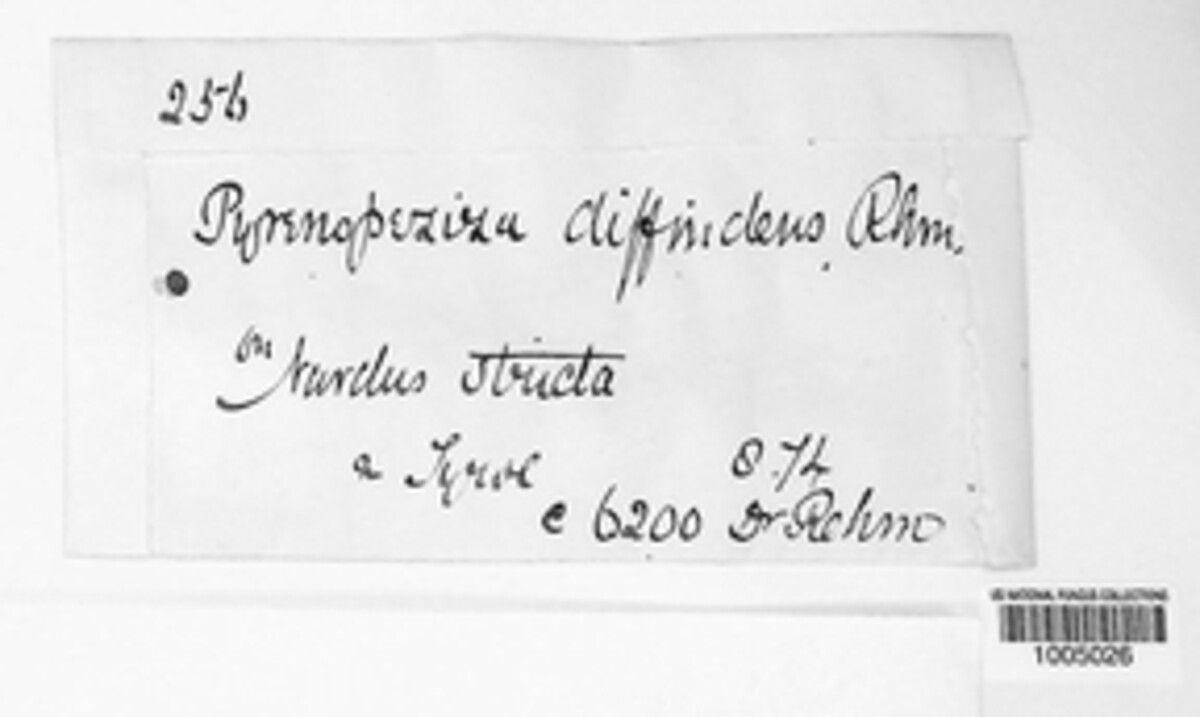 256
Pyrenopeziza diffindens Rhm.
on Nardus stricta
Tyrol 8.74
c 6200 Dr Rehm
US NATIONAL FUNGUS COLLECTIONS
1005026